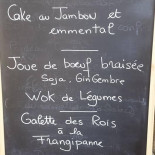 Cake au Jambon et
emmental
Joue de bœuf braisée
Soja, GinGembre
Wok de Légumes
Galette des Rois
à la
Frangipanne